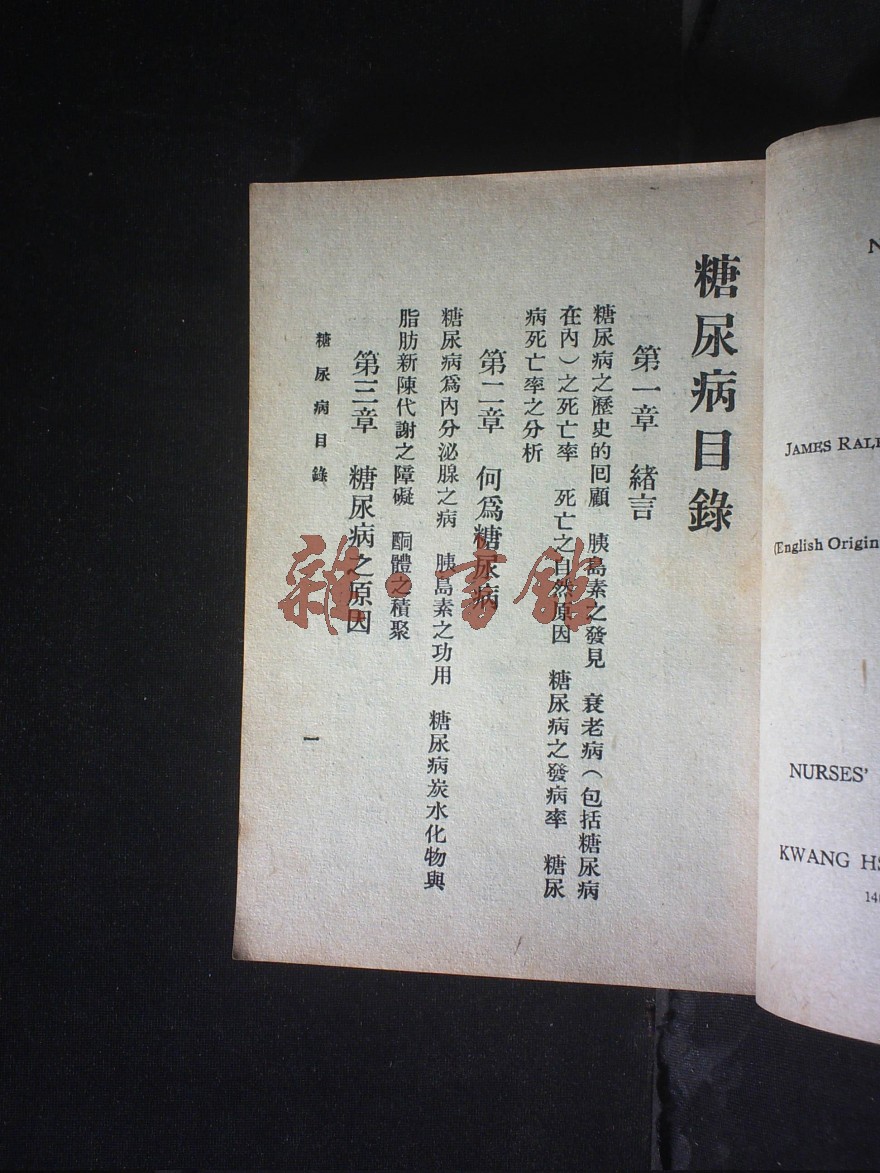 糖尿病目錄
第一章 緒言
糖尿病之歷史的回顧 胰島素之發見 衰老病(包括糖尿病
在內)之死亡率 死亡之自然原因 糖尿病之發病率 糖尿
病死亡率之分析
第二章 何爲糖尿病
糖尿病爲內分泌腺之病 胰島素之功用 糖尿病炭水化物與
脂肪新陳代謝之障礙 酮體之積聚
第三章 糖尿病之原因
糖尿病目錄
一
雜·書館
N
JAMES RAL
(English Origin
NURSES'
KWANG HS
14